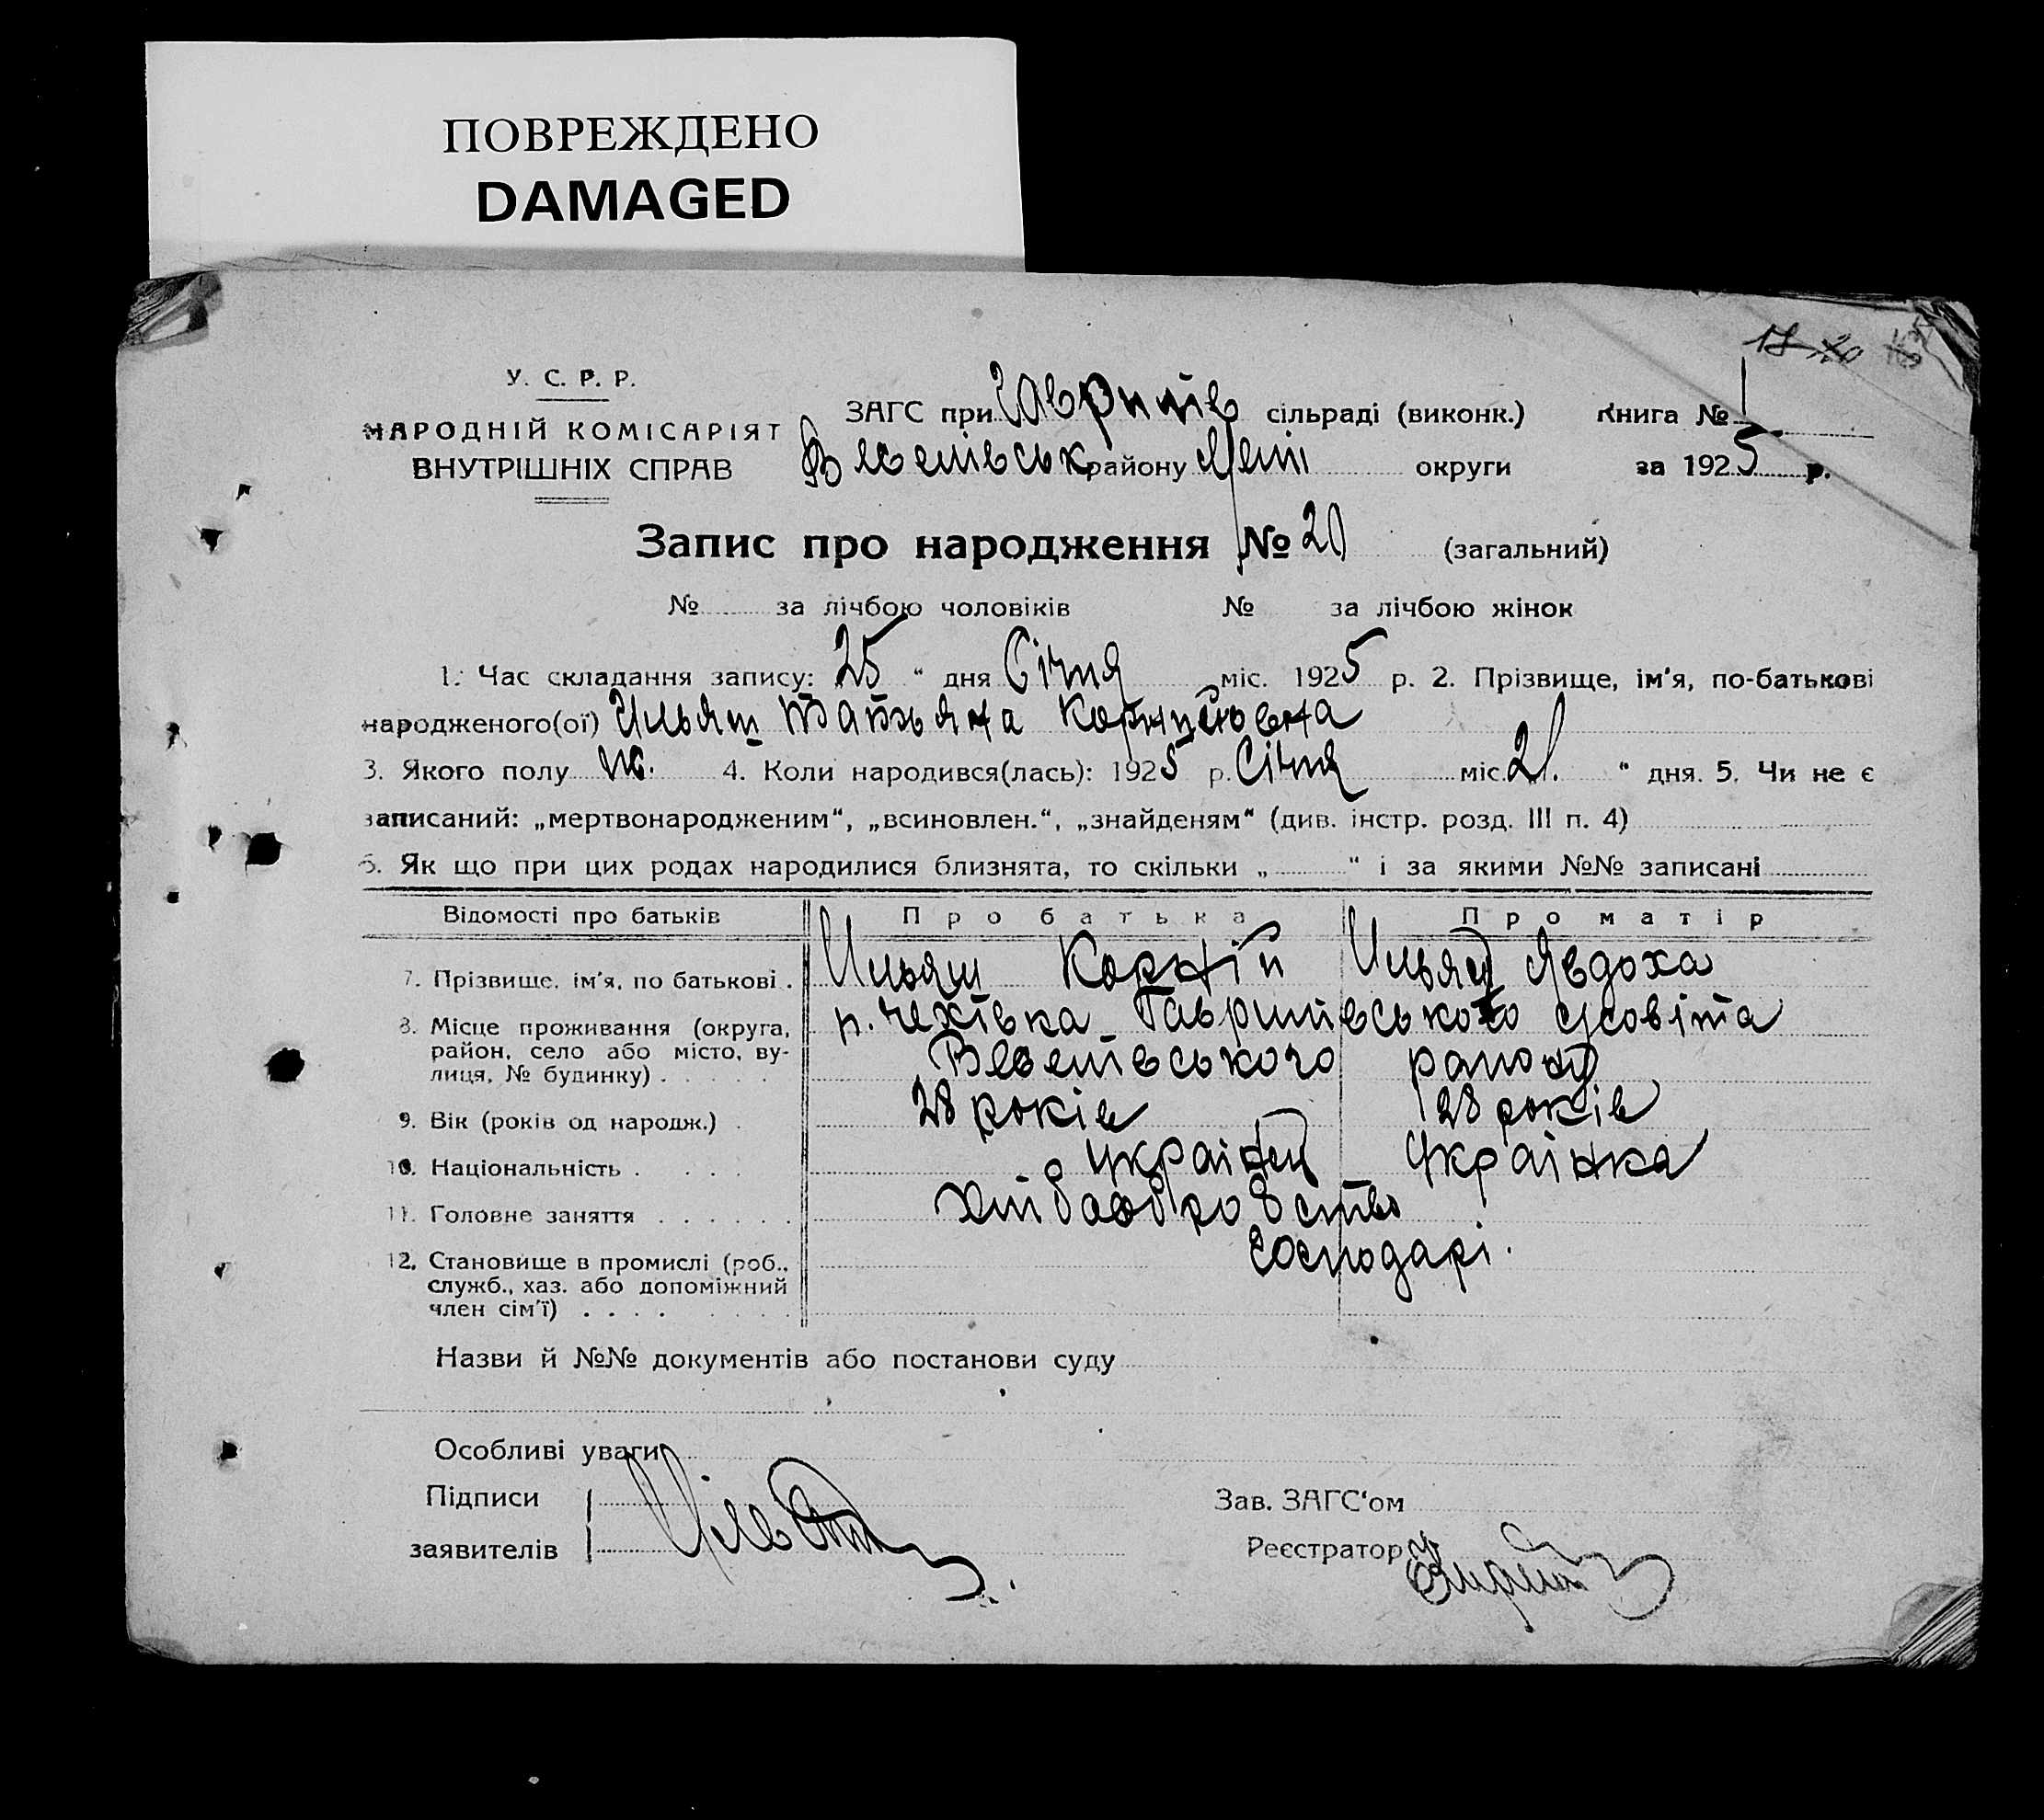 ПОВРЕЖДЕНО
DAMAGED
У. С. Р. Р.
НАРОДНІЙ КОМІСАРІЯТ
ВНУТРІШНІХ СПРАВ
ЗАГС при сільраді (виконк.) Книга № 1
району округи за 1925 р.
Запис про народження № 20 (загальний)
№ за лічбою чоловіків № за лічбою жінок
1. Час складання запису: 25 " дня Січня міс. 1925 р. 2. Прізвище, ім'я, по-батькові
народженого(ої) Ильяш Татьяна
3. Якого полу ж. 4. Коли народився(лась): 1925 р. Січня міс. 21 " дня. 5. Чи не є
записаний: „мертвонародженим", „всиновлен.", „знайденям" (див. інстр. розд. III п. 4)
6. Як що при цих родах народилися близнята, то скільки „ " і за якими №№ записані
Відомості про батьків Про батька Про матір
7. Прізвище, ім'я, по батькові . Ильяш Корній Ильяш Явдоха
8. Місце проживання (округа,
район, село або місто, ву-
лиця, № будинку) . . . . .
9. Вік (років од народж.) . 28 років 28 років
10. Національність . . . . Українец Українка
11. Головне заняття . . . . . .
12. Становище в промислі (роб.,
служб., хаз. або допоміжний
член сім'ї) . . . . . . . .
господарі.
Назви й №№ документів або постанови суду
Особливі уваги
Підписи
заявителів
Зав. ЗАГС'ом
Реєстратор